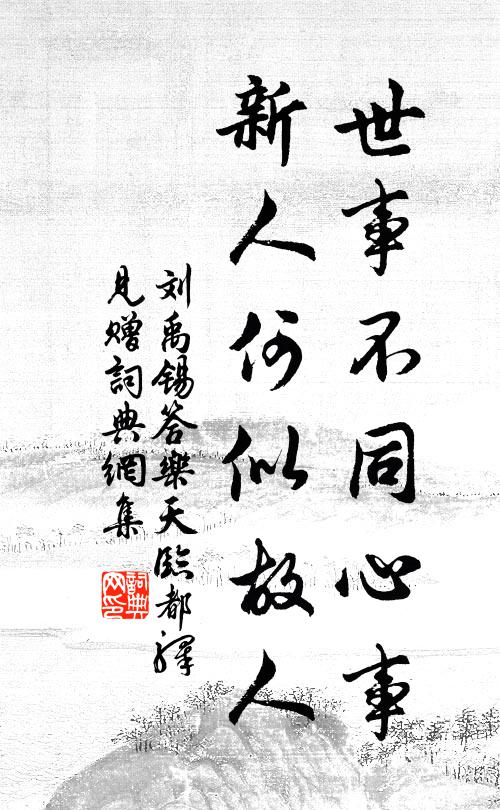 世事不同心事
新人何似故人
刘禹锡答樂天臨都驛
見赠詞典網集
詞典
网印